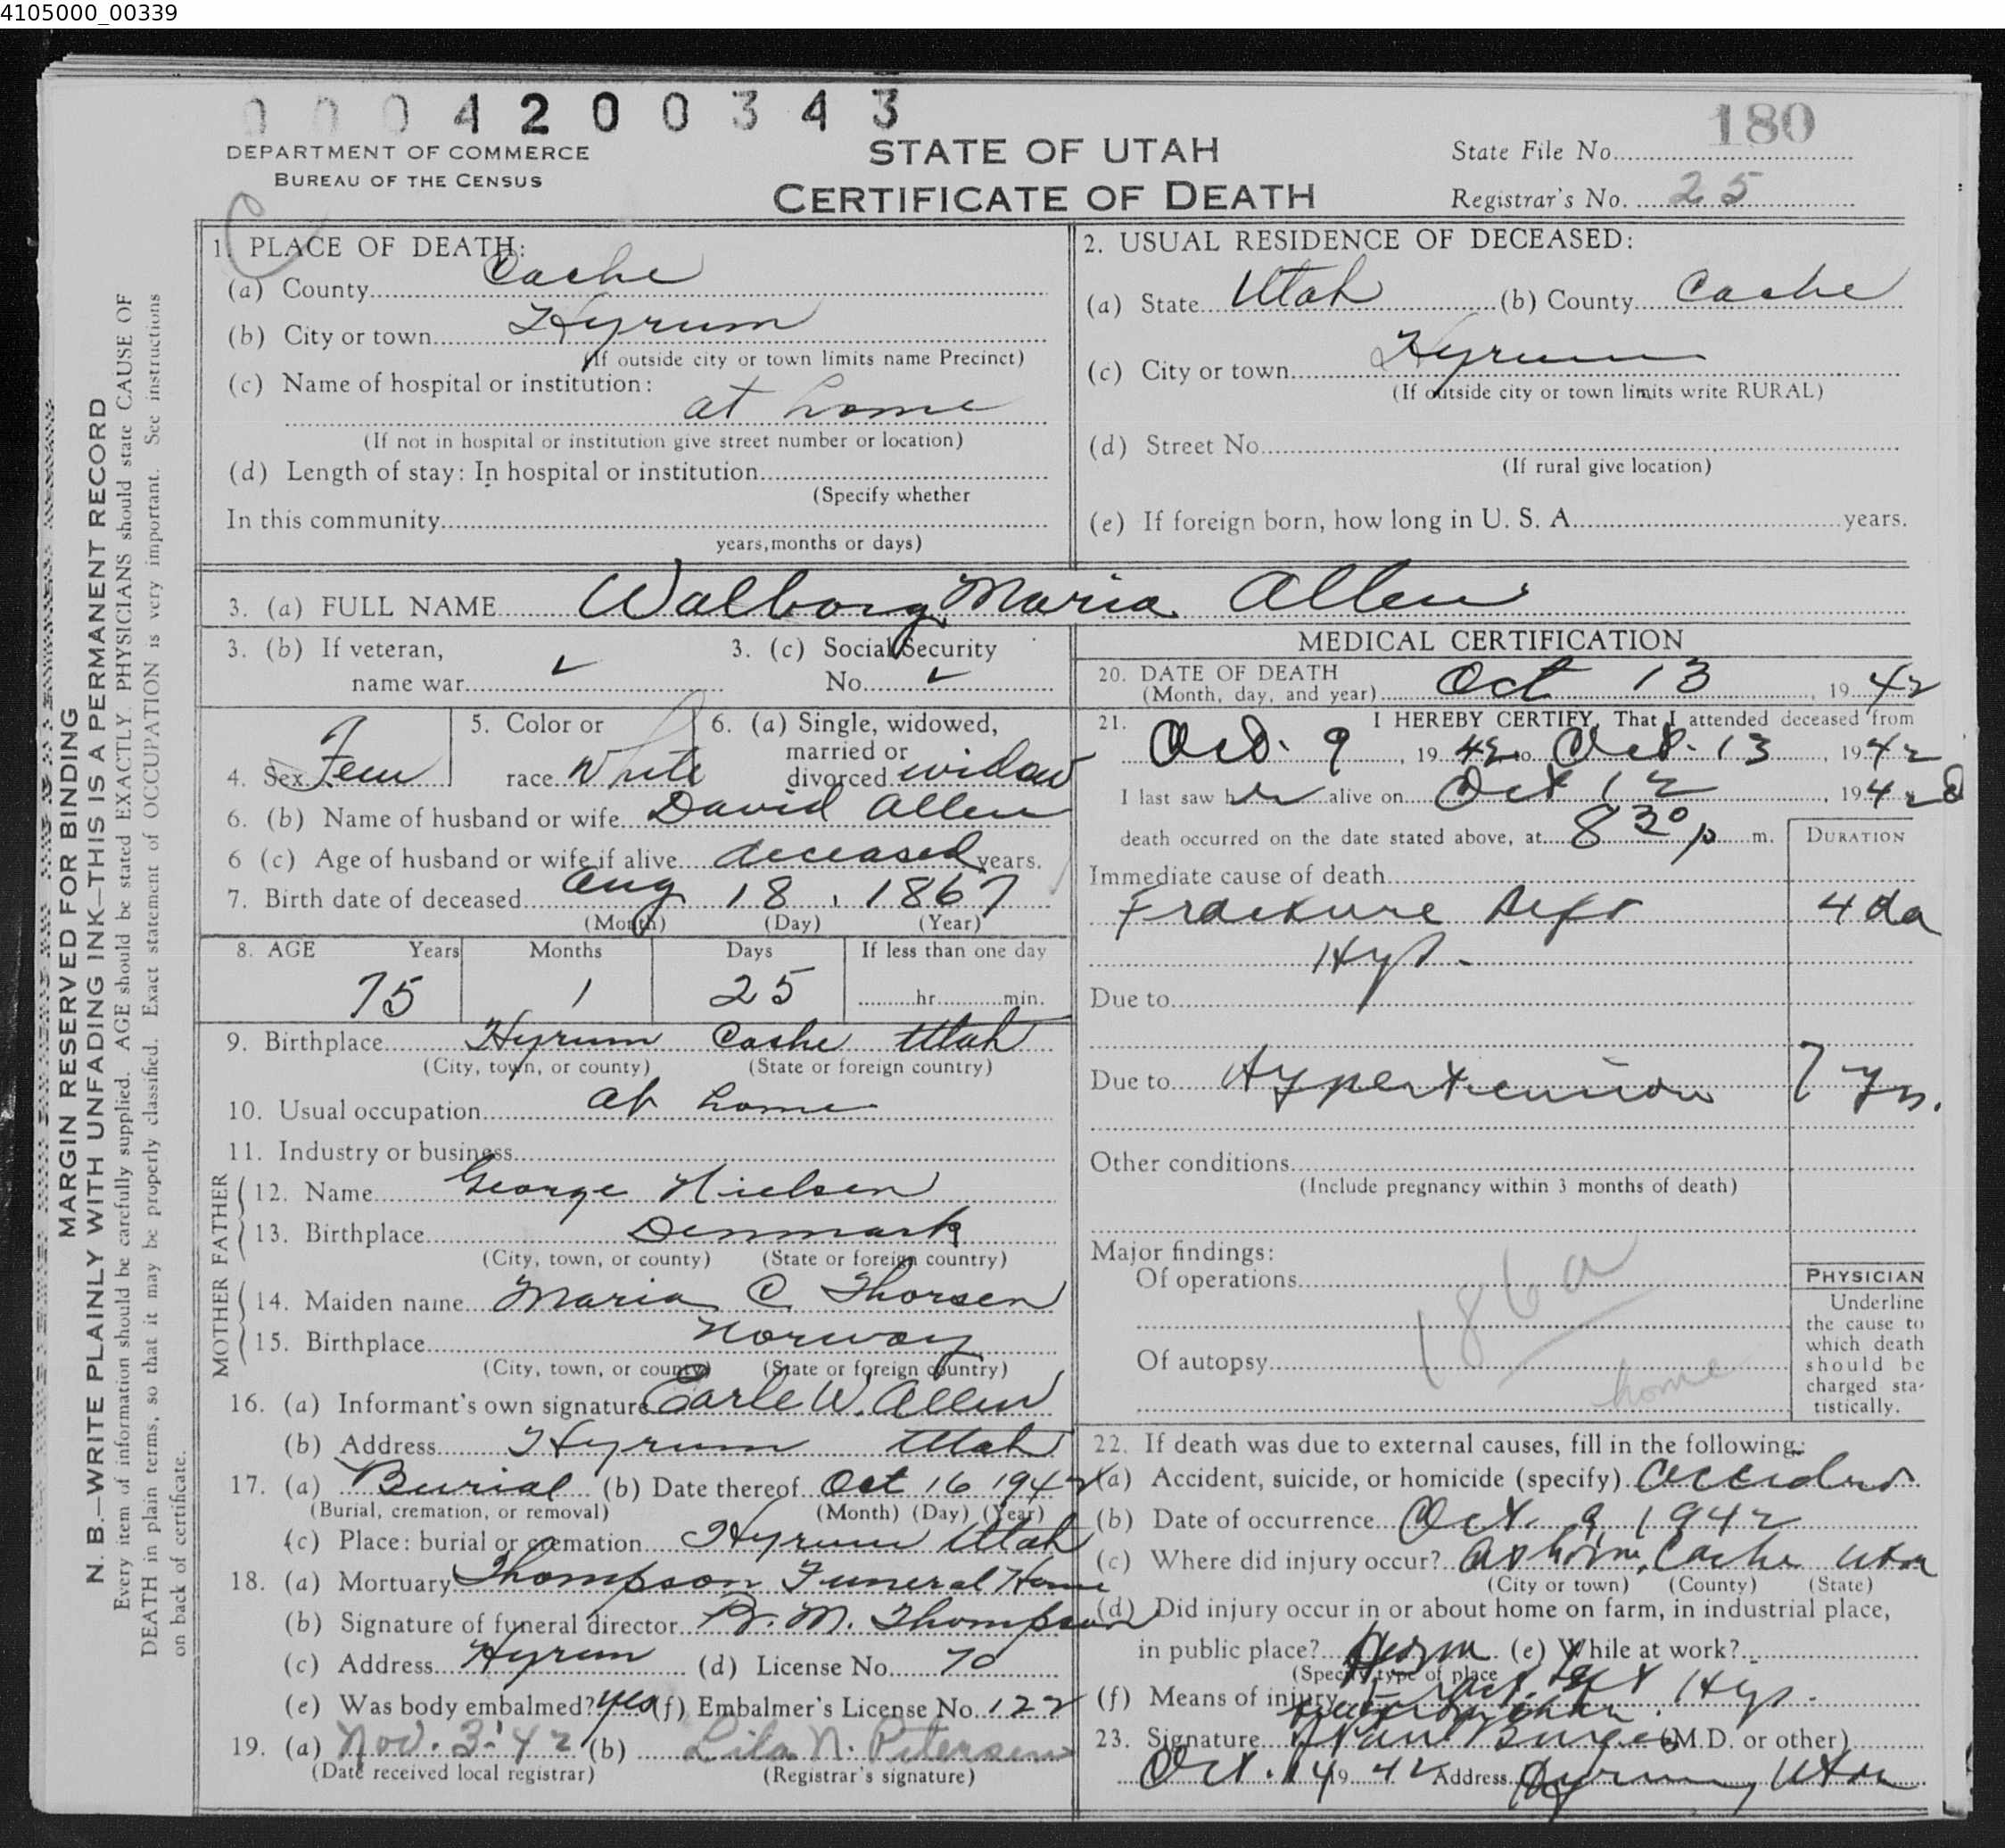 4105000_00339
0004200343
180
DEPARTMENT OF COMMERCE
BUREAU OF THE CENSUS
STATE OF UTAH
CERTIFICATE OF DEATH
State File No.
Registrar's No. 25
MARGIN RESERVED FOR BINDING
N. B.—WRITE PLAINLY WITH UNFADING INK—THIS IS A PERMANENT RECORD
Every item of information should be carefully supplied. AGE should be stated EXACTLY. PHYSICIANS should state CAUSE OF
DEATH in plain terms, so that it may be properly classified. Exact statement of OCCUPATION is very important. See instructions
on back of certificate.
C
1. PLACE OF DEATH:
(a) County Cache
(b) City or town Hyrum
(If outside city or town limits name Precinct)
(c) Name of hospital or institution:
at home
(If not in hospital or institution give street number or location)
(d) Length of stay: In hospital or institution
(Specify whether
In this community
years, months or days)
2. USUAL RESIDENCE OF DECEASED:
(a) State Utah (b) County Cache
(c) City or town Hyrum
(If outside city or town limits write RURAL)
(d) Street No.
(If rural give location)
(e) If foreign born, how long in U. S. A. years.
3. (a) FULL NAME Walborg Maria Allen
3. (b) If veteran, 3. (c) Social Security
name war ✓ No. ✓
4. Sex Fem 5. Color or race White 6. (a) Single, widowed, married or divorced widow
6. (b) Name of husband or wife David Allen
6 (c) Age of husband or wife if alive deceased years.
7. Birth date of deceased Aug 18, 1867
(Month) (Day) (Year)
8. AGE Years Months Days If less than one day
75 1 25 hr. min.
9. Birthplace Hyrum Cache Utah
(City, town, or county) (State or foreign country)
10. Usual occupation at home
11. Industry or business
FATHER
12. Name George Nielsen
13. Birthplace Denmark
(City, town, or county) (State or foreign country)
MOTHER
14. Maiden name Maria C Thorsen
15. Birthplace Norway
(City, town, or county) (State or foreign country)
16. (a) Informant's own signature Earle W. Allen
(b) Address Hyrum Utah
17. (a) Burial (b) Date thereof Oct 16 1942
(Burial, cremation, or removal) (Month) (Day) (Year)
(c) Place: burial or cremation Hyrum Utah
18. (a) Mortuary Thompson Funeral Home
(b) Signature of funeral director M. Thompson
(c) Address Hyrum (d) License No. 70
(e) Was body embalmed? yes (f) Embalmer's License No. 122
19. (a) Nov. 3-'42 (b) Lila N. Petersen
(Date received local registrar) (Registrar's signature)
MEDICAL CERTIFICATION
20. DATE OF DEATH
(Month, day, and year) Oct 13, 1942
21. I HEREBY CERTIFY, That I attended deceased from
Oct. 9, 1942 to Oct. 13, 1942
I last saw her alive on Oct 12, 1942
death occurred on the date stated above, at 8 30 p m. DURATION
Immediate cause of death
Fracture Left 4 da
Hip.
Due to
Due to Hypertension 7 yrs.
Other conditions
(Include pregnancy within 3 months of death)
Major findings:
Of operations
186a
Of autopsy
home
PHYSICIAN
Underline
the cause to
which death
should be
charged sta-
tistically.
22. If death was due to external causes, fill in the following:
(a) Accident, suicide, or homicide (specify) Accident
(b) Date of occurrence Oct. 9 1942
(c) Where did injury occur? at home, Cache Utah
(City or town) (County) (State)
(d) Did injury occur in or about home on farm, in industrial place,
in public place? Home (e) While at work?
(Specify type of place
(f) Means of injury Left Hip.
23. Signature (M.D. or other)
Oct. 14 1942 Address Hyrum, Utah